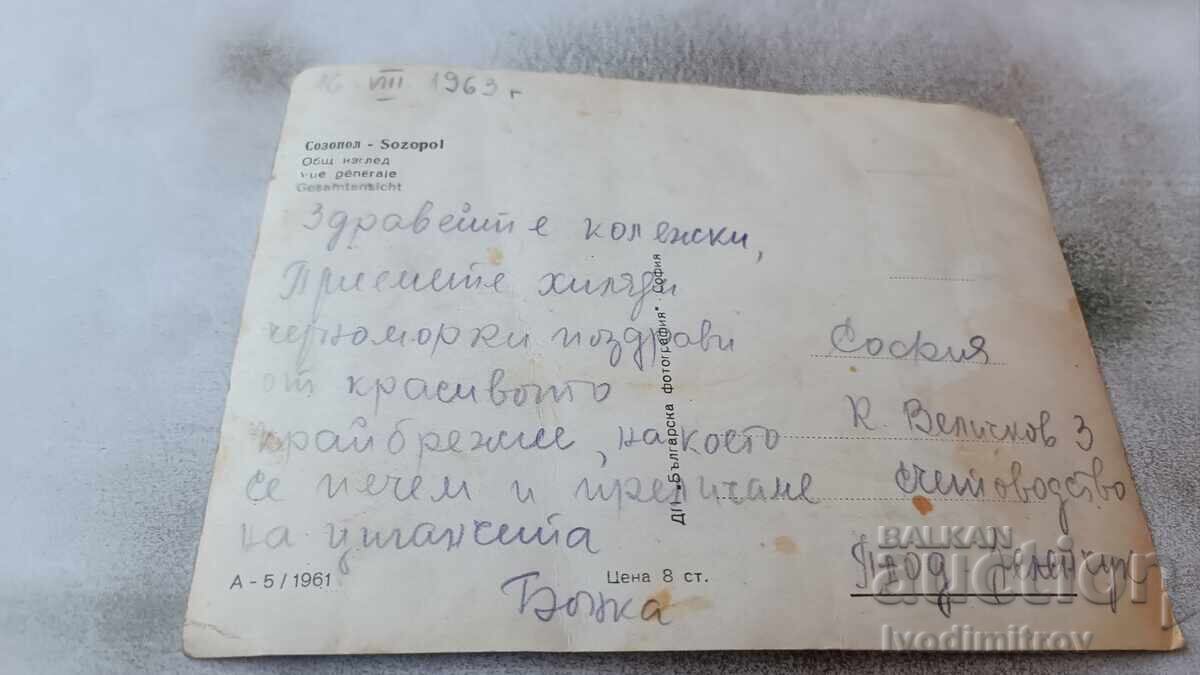 16 VIII 1963 г
Созопол - Sozopol
Общ изглед
Vue générale
Gesamtansicht
Здравейте колежки,
Приемете хиляди
черноморки поздрави
от красивото
крайбрежие, на което
се печем и препичаме
на циганчета
Божка
А - 5 / 1961
Цена 8 ст.
ДП "Българска фотография" · София
София
К. Величков 3
счетоводство
BALKAN
auction
Ivodimitrov